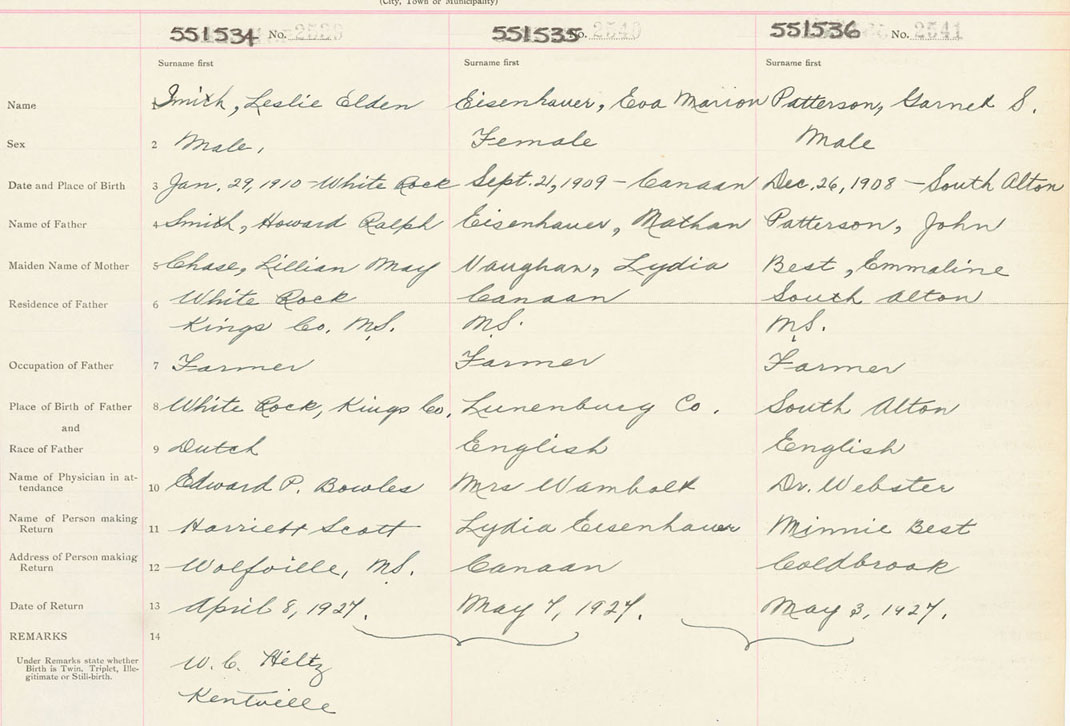 (City, Town or Municipality)
551534 No. 2539 551535 No. 2540 551536 No. 2541
Surname first Surname first Surname first
Name 1 Smith, Leslie Elden Eisenhauer, Eva Marion Patterson, Garnet S.
Sex 2 Male, Female Male
Date and Place of Birth 3 Jan. 29, 1910 - White Rock Sept. 21, 1909 - Canaan Dec. 26, 1908 - South Alton
Name of Father 4 Smith, Howard Ralph Eisenhauer, Nathan Patterson, John
Maiden Name of Mother 5 Chase, Lillian May Vaughan, Lydia Best, Emmaline
Residence of Father 6 White Rock Canaan South Alton
Kings Co. N.S. N.S. N.S.
Occupation of Father 7 Farmer Farmer Farmer
Place of Birth of Father 8 White Rock, Kings Co. Lunenburg Co. South Alton
and
Race of Father 9 Dutch English English
Name of Physician in at-
tendance 10 Edward P. Bowles Mrs Wambolt Dr. Webster
Name of Person making
Return 11 Harriett Scott Lydia Eisenhauer Minnie Best
Address of Person making
Return 12 Wolfville, N.S. Canaan Coldbrook
Date of Return 13 April 8, 1927. May 7, 1927. May 3, 1927.
REMARKS 14
Under Remarks state whether
Birth is Twin, Triplet, Ille-
gitimate or Still-birth.
W. C. Hiltz
Kentville